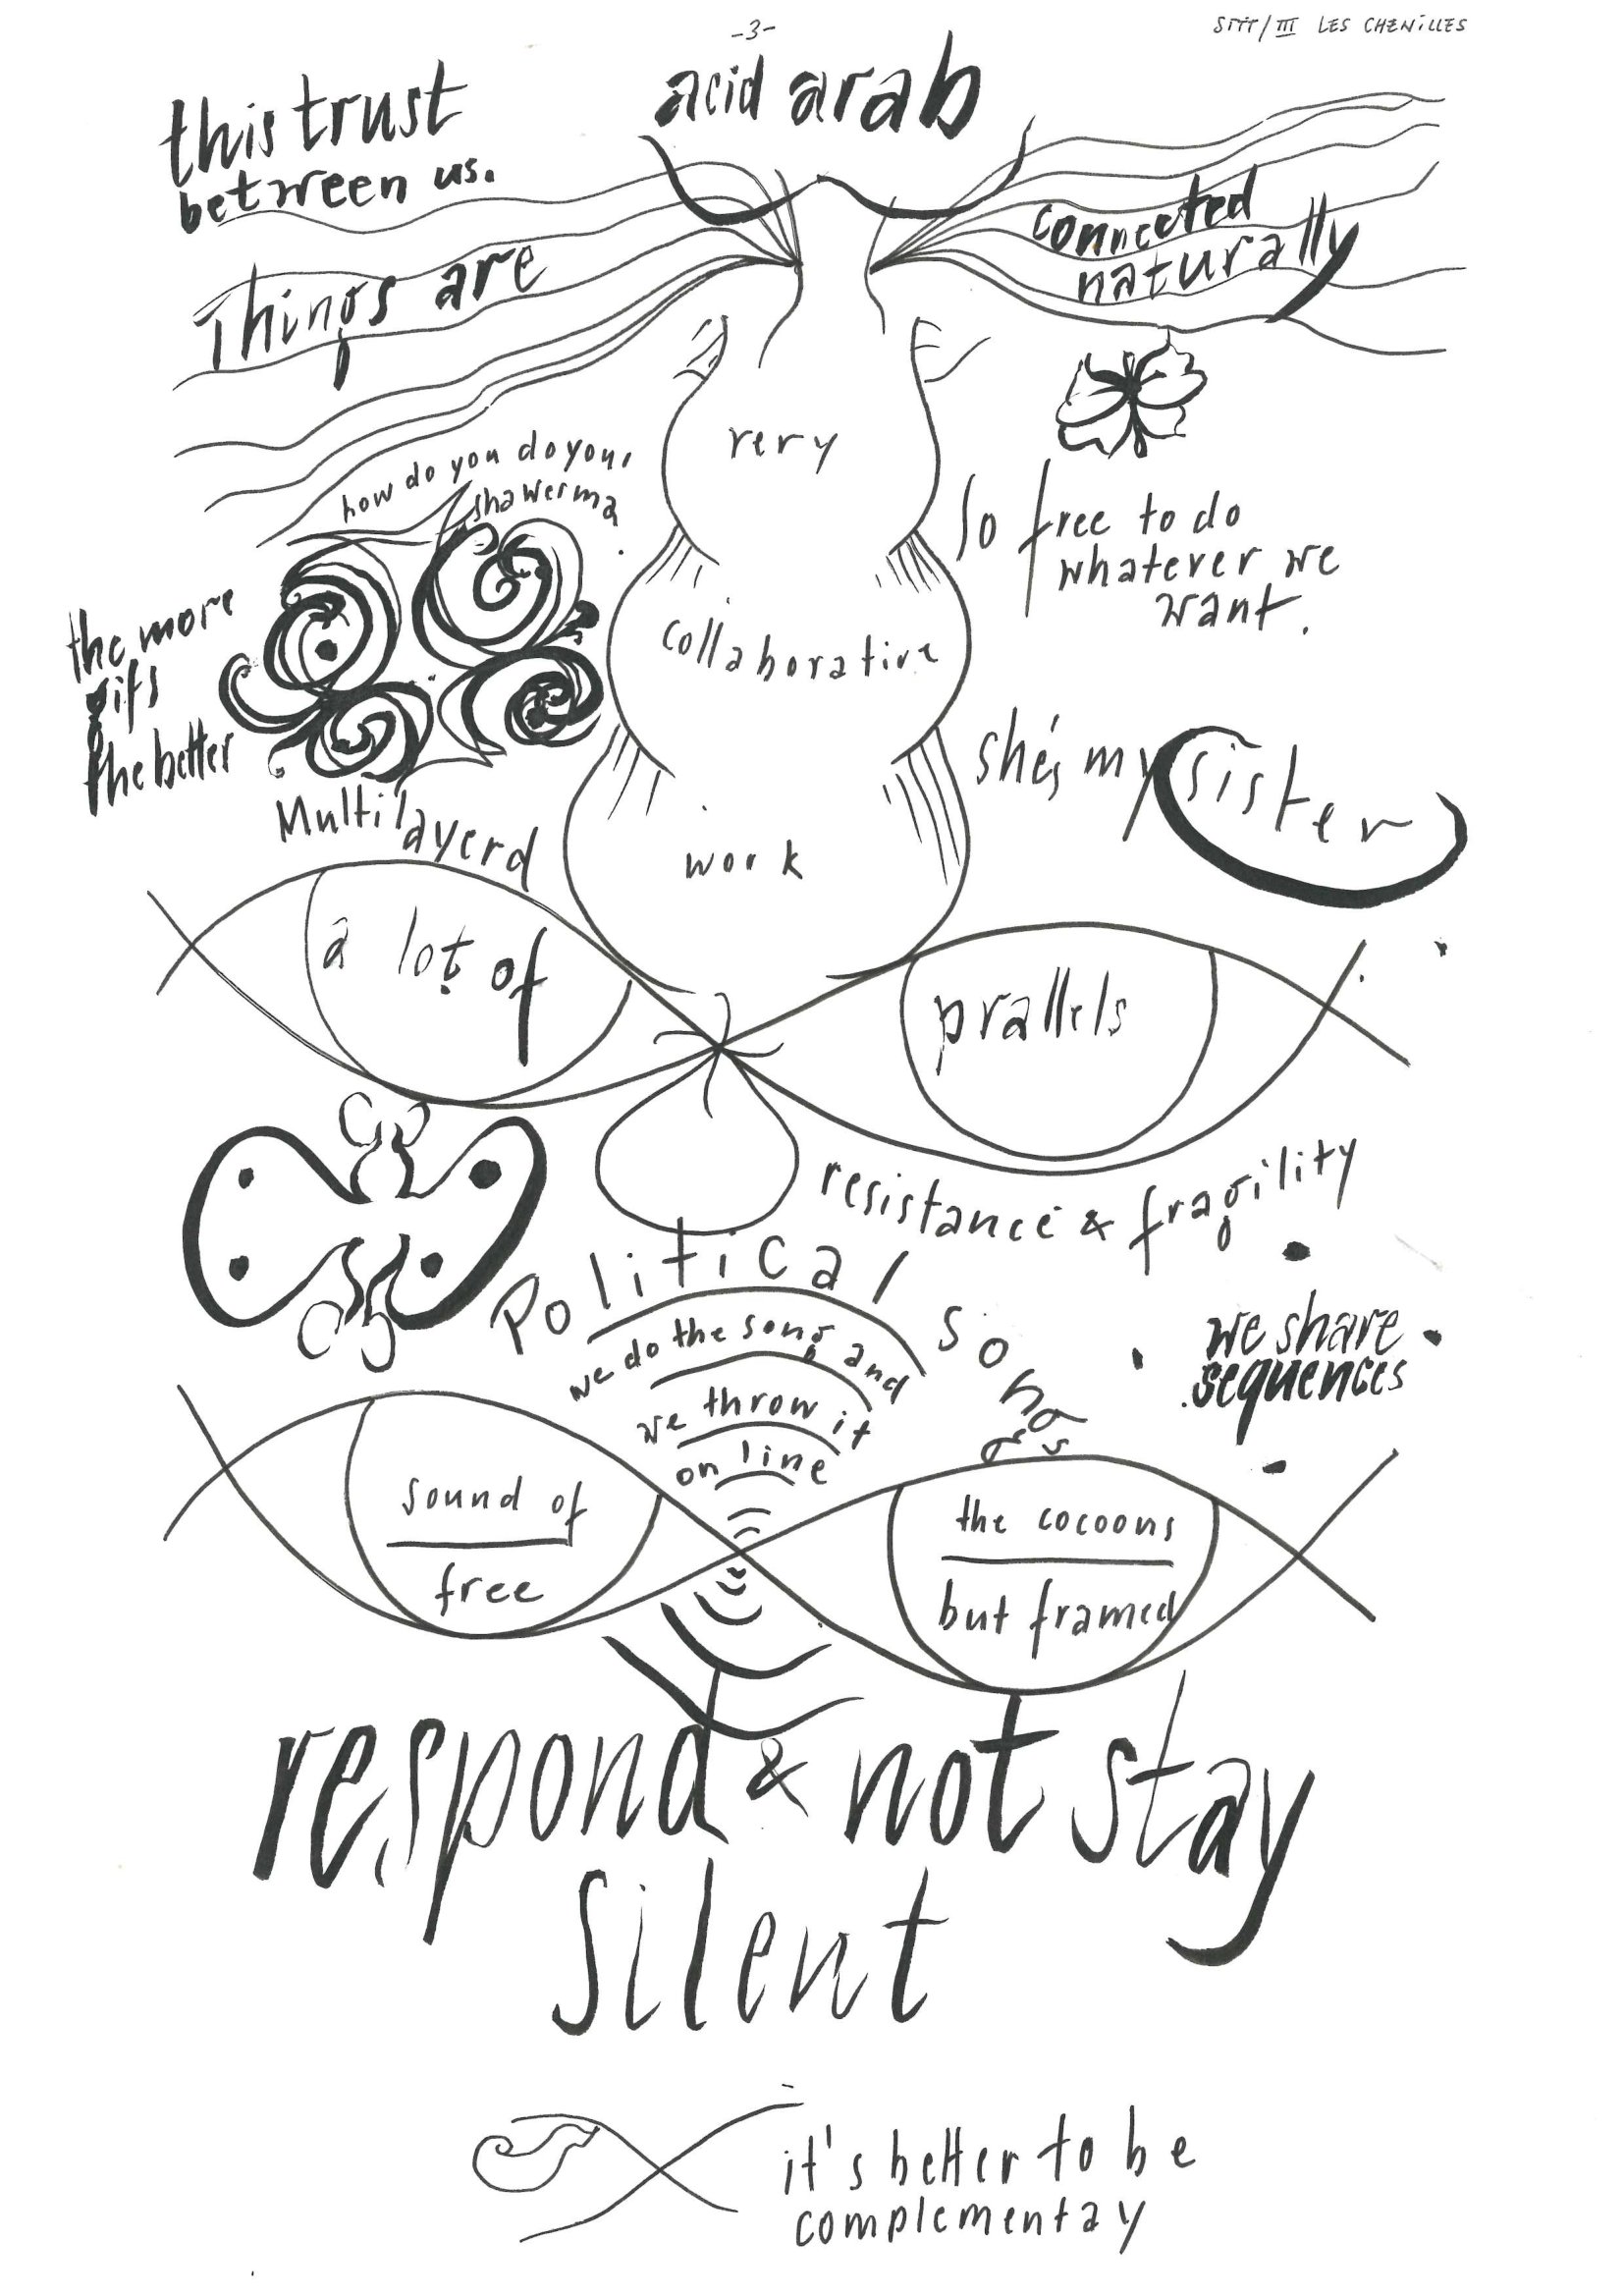 -3-
SITT/III LES CHENILLES
acid arab
this trust
between us.
Things are
connected
naturally
very
how do you do your
shawerma
so free to do
whatever we
want.
collaborative
the more
gifs
the better
she's my sister
Multilayerd
work
a lot of
prallels
resistance & fragility
Political songs
we do the song and
we throw it
on line
we share
sequences
sound of
free
the cocoons
but framed
respond & not stay
silent
it's better to be
complementay